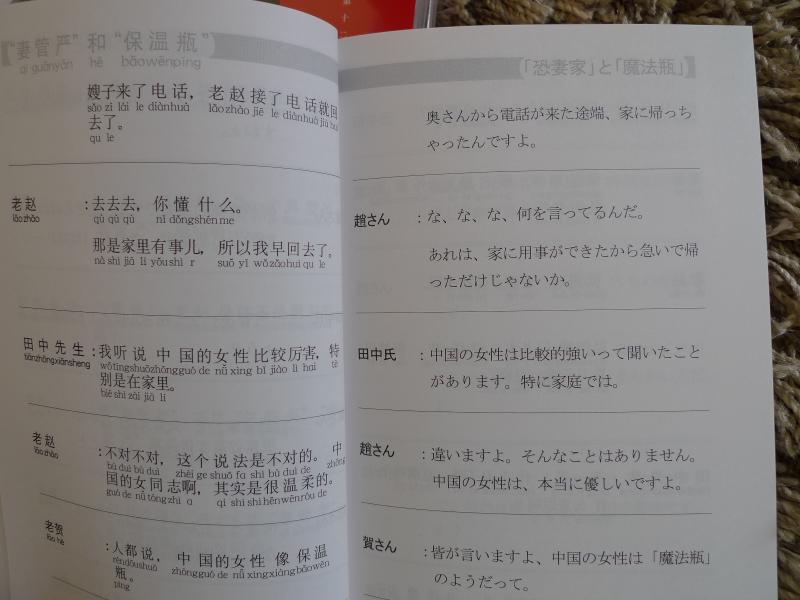 【“妻管严”和“保温瓶”
qī guǎnyán hé bǎowēnpíng
嫂子来了电话，老赵接了电话就回
sǎo zi lái le diànhuà lǎozhào jiē le diànhuà jiù huí
去了。
qu le
老赵：去去去，你懂什么。
lǎo zhào qù qù qù nǐ dǒngshén me
那是家里有事儿，所以我早回去了。
nà shì jiā li yǒu shì r suǒ yǐ wǒ zǎo huí qu le
田中先生：我听说中国的女性比较厉害，特
tiánzhōng xiānsheng wǒ tīngshuō zhōngguó de nǚ xìng bǐ jiào lì hai tè
别是在家里。
bié shì zài jiā li
老赵：不对不对，这个说法是不对的。中
lǎo zhào bú duì bú duì zhèi ge shuō fa shì bú duì de zhōng
国的女同志啊，其实是很温柔的。
guó de nǚ tóng zhì a qí shí shì hěn wēn róu de
老贺：人都说，中国的女性像保温
lǎo hè rén dōu shuō zhōng guó de nǚ xìng xiàng bǎo wēn
瓶。
píng
「恐妻家」と「魔法瓶」】
奥さんから電話が来た途端、家に帰っち
ゃったんですよ。
趙さん：な、な、な、何を言ってるんだ。
あれは、家に用事ができたから急いで帰
っただけじゃないか。
田中氏：中国の女性は比較的強いって聞いたこと
があります。特に家庭では。
趙さん：違いますよ。そんなことはありません。
中国の女性は、本当に優しいですよ。
賀さん：皆が言いますよ、中国の女性は「魔法瓶」
のようだって。
第十二